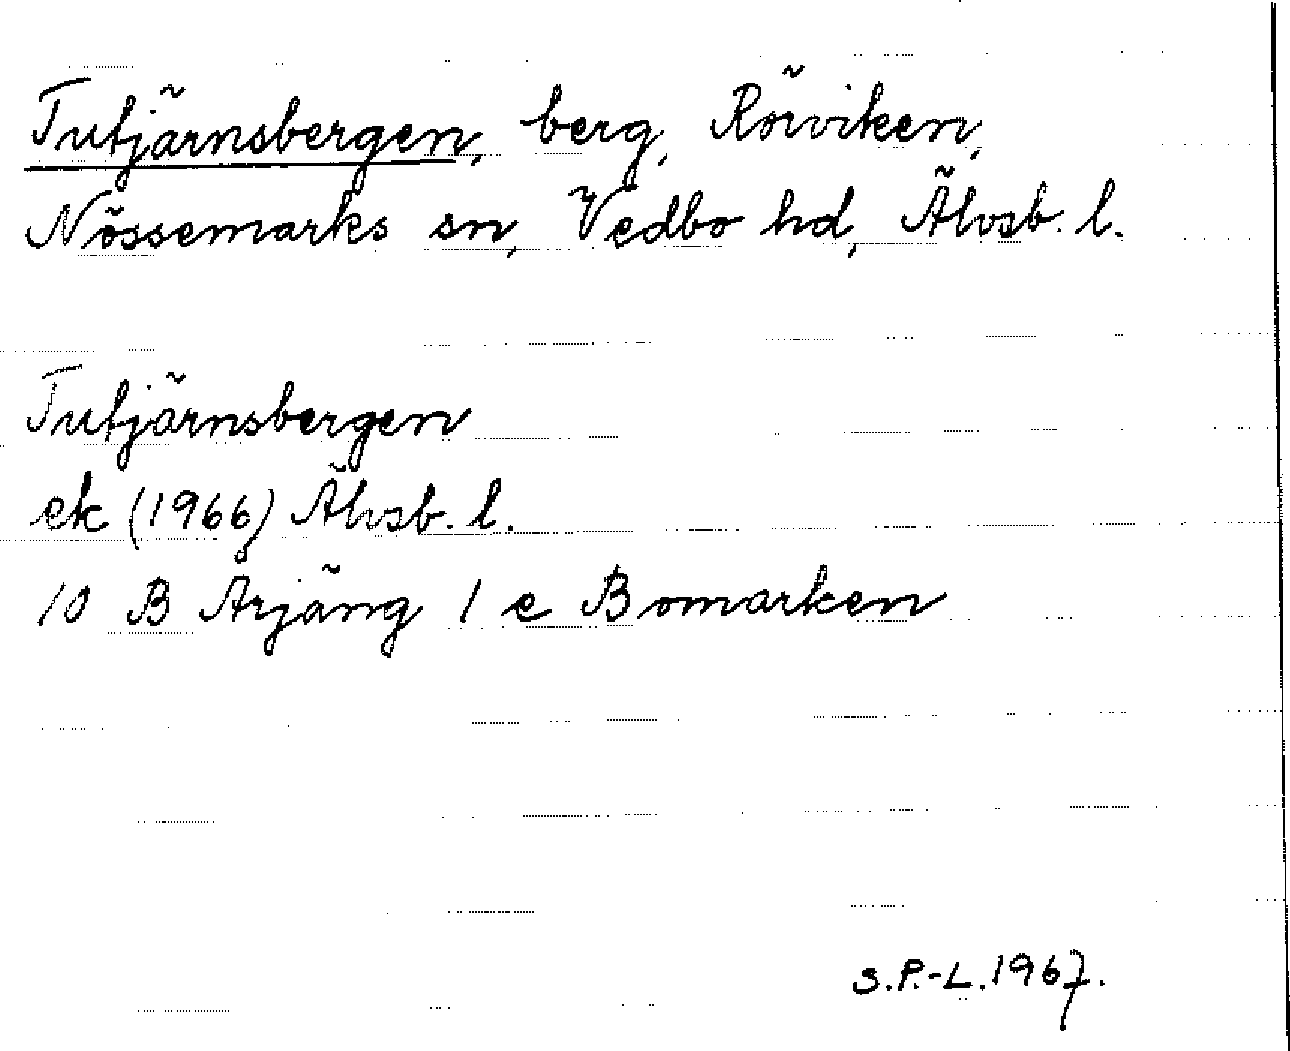 Tutjärnsbergen, berg, Rörviken,
Nössemarks sn, Vedbo hd, Älvsb. l.
Tutjärnsbergen
ek (1966) Älvsb. l.
10 B Årjäng 1 e Bomarken
S.P.-L. 1967.